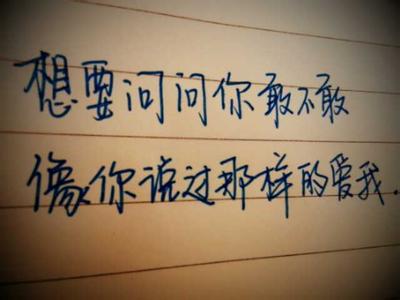 想要问问你敢不敢
像你说过那样的爱我.